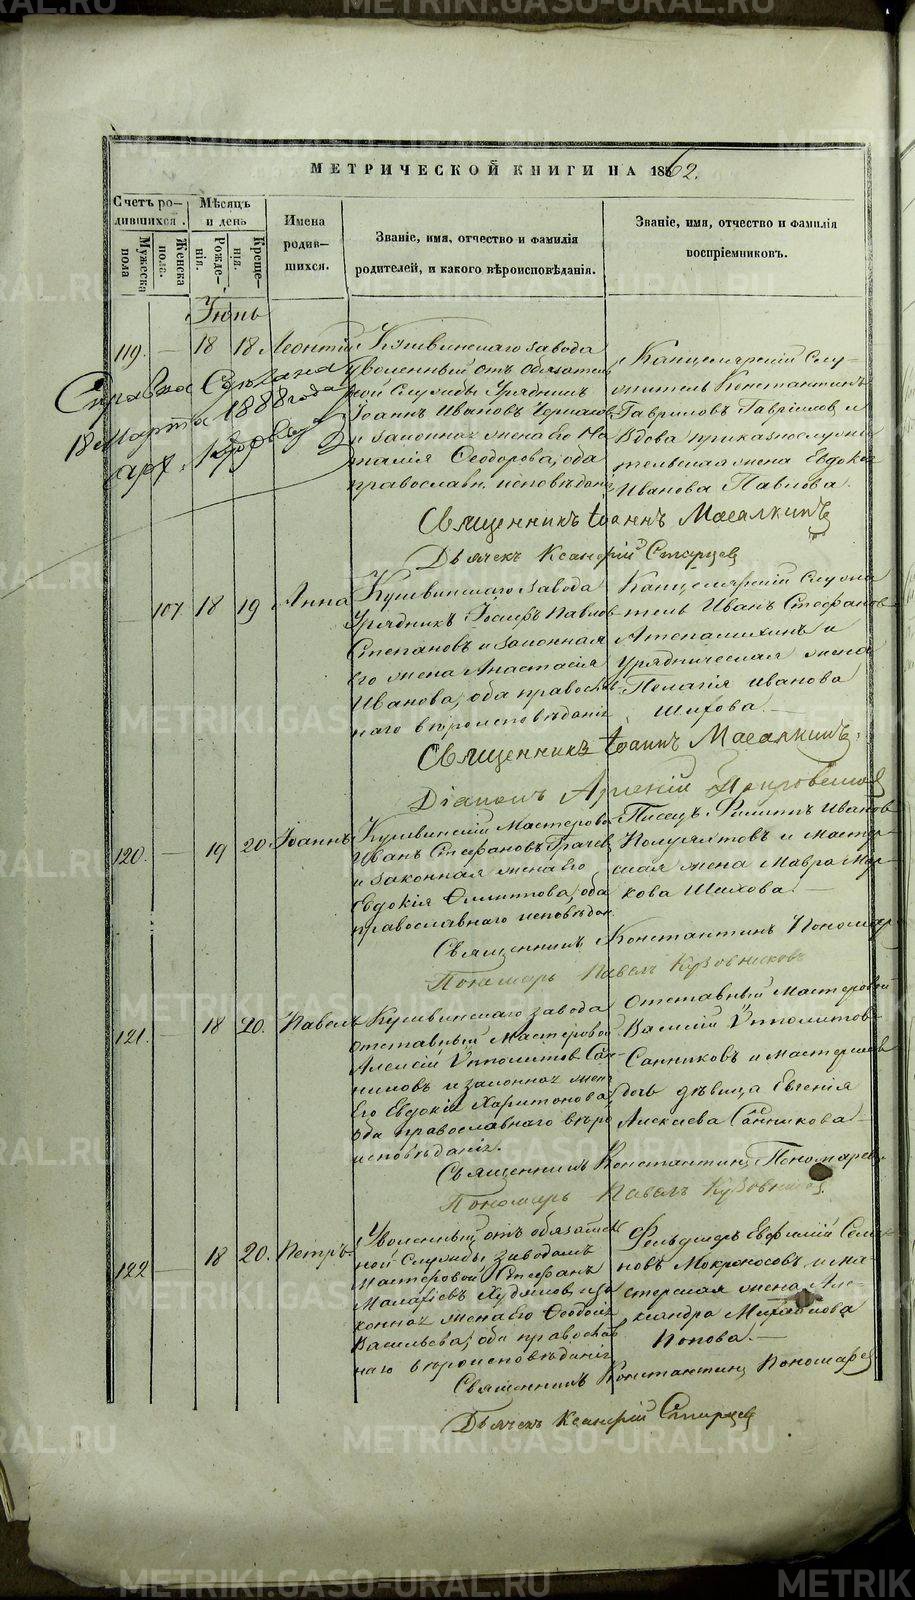 МЕТРИЧЕСКОЙ КНИГИ НА 1862.
Счетъ родившихся.
Мужеска пола
Женска пола.
Мѣсяцъ и день
Рожденія.
Крещенія.
Имена родившихся.
Званіе, имя, отчество и фамилія родителей, и какого вѣроисповѣданія.
Званіе, имя, отчество и фамилія воспріемниковъ.
Іюнь
119. — 18 18 Леонтій
Кушвинскаго завода
уволенный отъ обязатель
ной службы Урядникъ
Іоаннъ Ивановъ
и законная жена его На
талія Ѳеодорова, оба
православн. исповѣдан
Канцелярскій слу-
житель Константинъ
Гавриловъ Гавриловъ и
вдова приказнослужи
тельская жена Евдокія
Иванова Павлова.
Справка Сдѣлана
18 Марта 1888 года
Священникъ Іоаннъ Масалкинъ
Дьячекъ Ксанфій Старцев
— 107 18 19 Анна
Кушвинскаго завода
Урядникъ Іосифъ Павлов
Степановъ и законная
его жена Анастасія
Иванова, оба православ
наго вѣроисповѣданія
Канцелярскій служи
тель Иванъ Стефанов
и
урядническая жена
Пелагія Иванова
Шихова.
Священникъ Іоаннъ Масалкинъ.
Діаконъ Арсеній Покровскій
120. — 19 20 Іоаннъ
Кушвинскій мастерово
Иванъ Стефановъ Грачев
и законная жена его
Евдокія Филиппова, оба
православнаго исповѣдан.
Писецъ Филиппъ Иванов
и мастер-
ская жена Мавра Мар
кова Шихова.
Священникъ Константинъ Пономар
Пономарь Павелъ Кузовников
121. — 18 20. Павелъ
Кушвинскаго завода
отставный мастеровой
Алексій Ипполитов Сан-
никовъ и законная жен
его Евдокія Харитонова,
оба православнаго вѣро
исповѣданія.
Отставный мастеровой
Василій Ипполитов
Санниковъ и мастерская
дочь дѣвица Евгенія
Алексіева Санникова
Священникъ Константинъ Пономарев
Пономарь Павелъ Кузовников
122 — 18 20. Петръ
Уволенный отъ обязатель
ной службы заводамъ
мастеровой Стефанъ
Малахіевъ Худяковъ, и за
конная жена его Ѳеодосія
Васильева, оба православ
наго вѣроисповѣданія
Фельдшеръ Евфимій Семе
новъ Мокроносовъ и ма
стерская жена Але
ксандра Михайлова
Попова.
Священникъ Константинъ Пономарев
Дьячекъ Ксанфій Старцев
METRIKI.GASO-URAL.RU